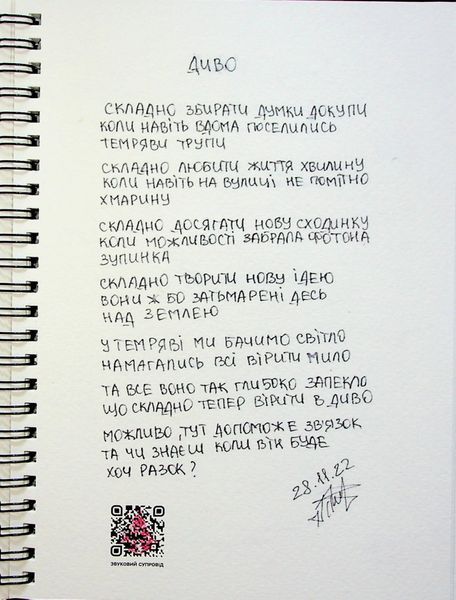 ДИВО
СКЛАДНО ЗБИРАТИ ДУМКИ ДОКУПИ
КОЛИ НАВІТЬ ВДОМА ПОСЕЛИЛИСЬ
ТЕМРЯВИ ТРУПИ
СКЛАДНО ЛЮБИТИ ЖИТТЯ ХВИЛИНУ
КОЛИ НАВІТЬ НА ВУЛИЦІ НЕ ПОМІТНО
ХМАРИНУ
СКЛАДНО ДОСЯГАТИ НОВУ СХОДИНКУ
КОЛИ МОЖЛИВОСТІ ЗАБРАЛА ФОТОНА
ЗУПИНКА
СКЛАДНО ТВОРИТИ НОВУ ІДЕЮ
ВОНИ Ж БО ЗАТЬМАРЕНІ ДЕСЬ
НАД ЗЕМЛЕЮ
У ТЕМРЯВІ МИ БАЧИМО СВІТЛО
НАМАГАЛИСЬ ВСІ ВІРИТИ МИЛО
ТА ВСЕ ВОНО ТАК ГЛИБОКО ЗАПЕКЛО
ЩО СКЛАДНО ТЕПЕР ВІРИТИ В ДИВО
МОЖЛИВО, ТУТ ДОПОМОЖЕ ЗВ'ЯЗОК
ТА ЧИ ЗНАЄШ КОЛИ ВІН БУДЕ
ХОЧ РАЗОК?
28.11.22
ЗВУКОВИЙ СУПРОВІД